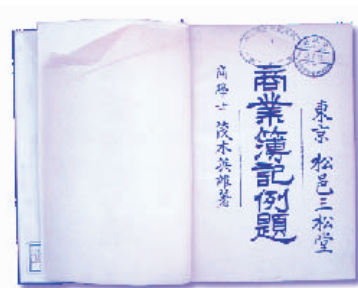 東京 松邑三松堂
商業簿記例題
商學士 茂木英雄著